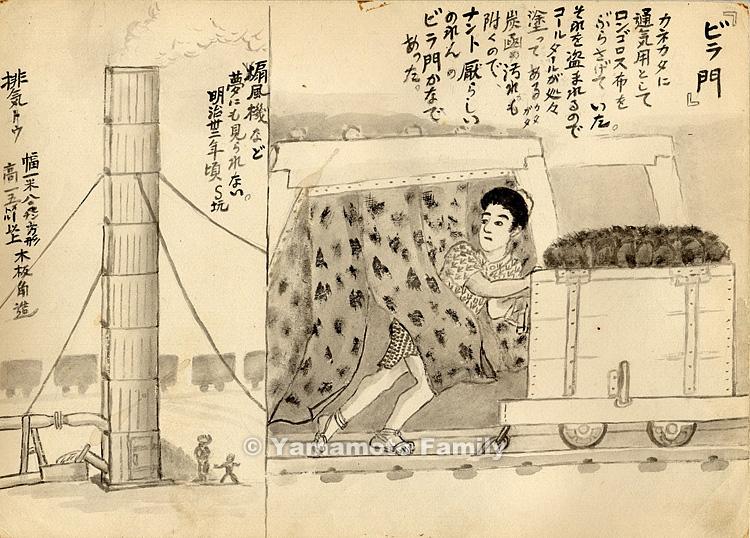 『ビラ門』
カネカタに
通気用として
ロンゴロス布を
ぶらさげていた。
それを盗まれるので
コールタールが処々
塗ってある、カタカタが
炭函の汚れも
附くので、
ナント厭らしい
のれんの
ビラ門かなで
あった。
扇風機など
夢にも見られない。
明治卅二年頃S坑
排気トウ
高一五米以上 木板角造
© Yamamoto Family